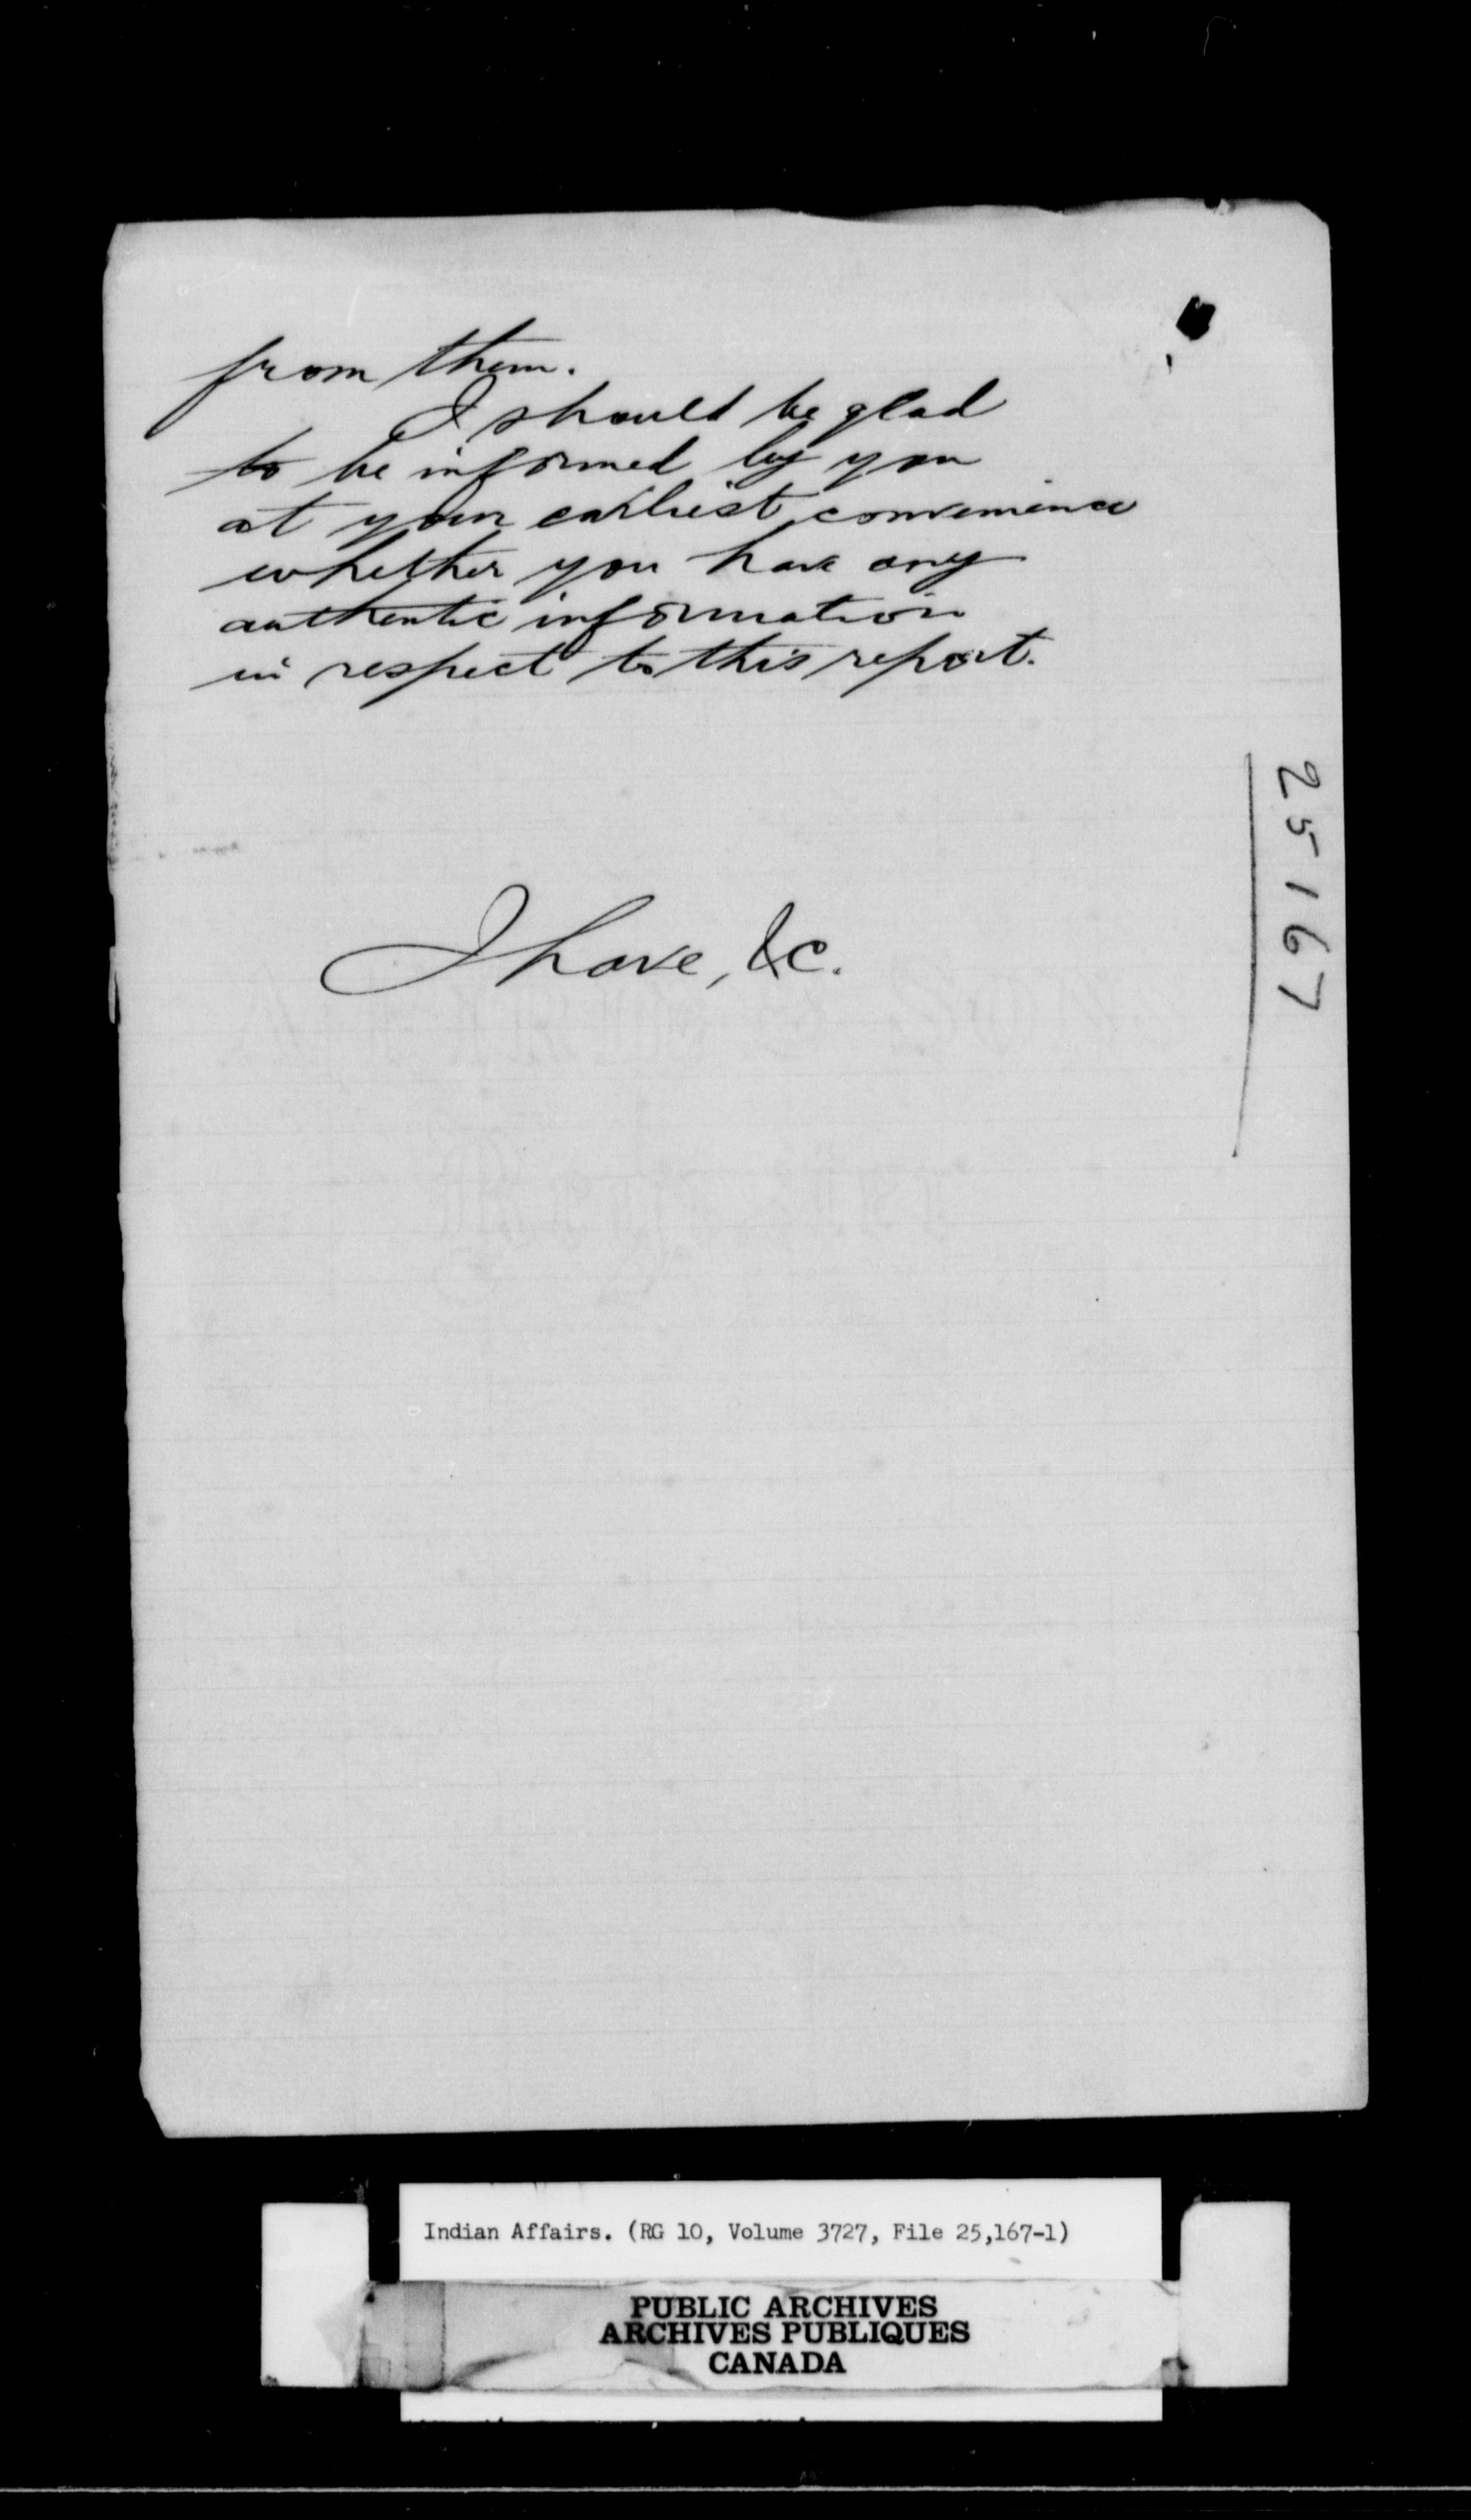 from them.
I should be glad
to be informed by you
at your earliest convenience
whether you have any
authentic information
in respect to this report.
25167
I have, &c.
Indian Affairs. (RG 10, Volume 3727, File 25,167-1)
PUBLIC ARCHIVES
ARCHIVES PUBLIQUES
CANADA